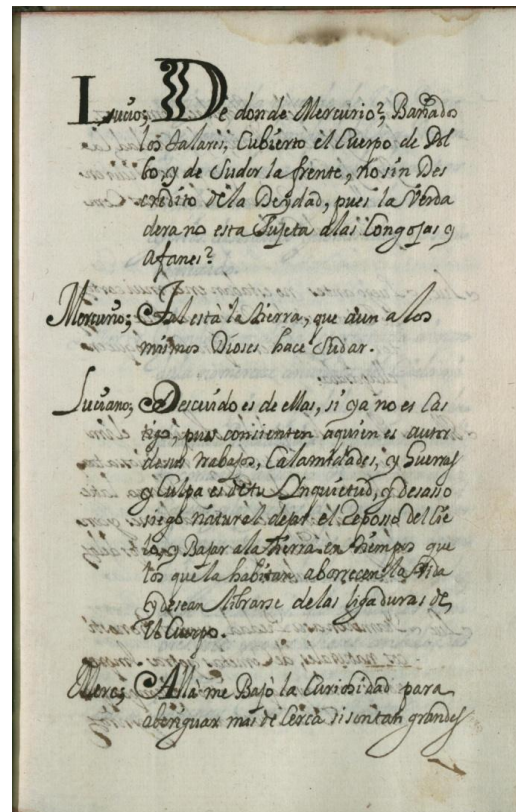 Lucio; De donde Mercurio? Bañados
los Talares, Cubierto el Cuerpo de Pol
bo, y de Sudor la frente, no sin Des
credito de la Deydad, pues la Verda
dera no esta Sujeta a las Congojas y
Afanes?
Mercurio; Tal està la tierra, que aun a los
mismos Dioses hace Sudar.
Luciano; Descuido es de ellos, si ya no es Cas
tigo, pues consienten aquien es autor
de sus trabajos, Calamidades, y Guerras
y Culpa es de tu Ynquietud, y desaso
siego natural dejar el Reposo del Cie
lo, y Bajar a la tierra en tiempos que
los que la habitan aborrecen la Vida
y desean librarse de las ligaduras de
el Cuerpo.
Merc; Allá me Bajò la Curiosidad para
aberiguar mas de Cerca si son tan grandes